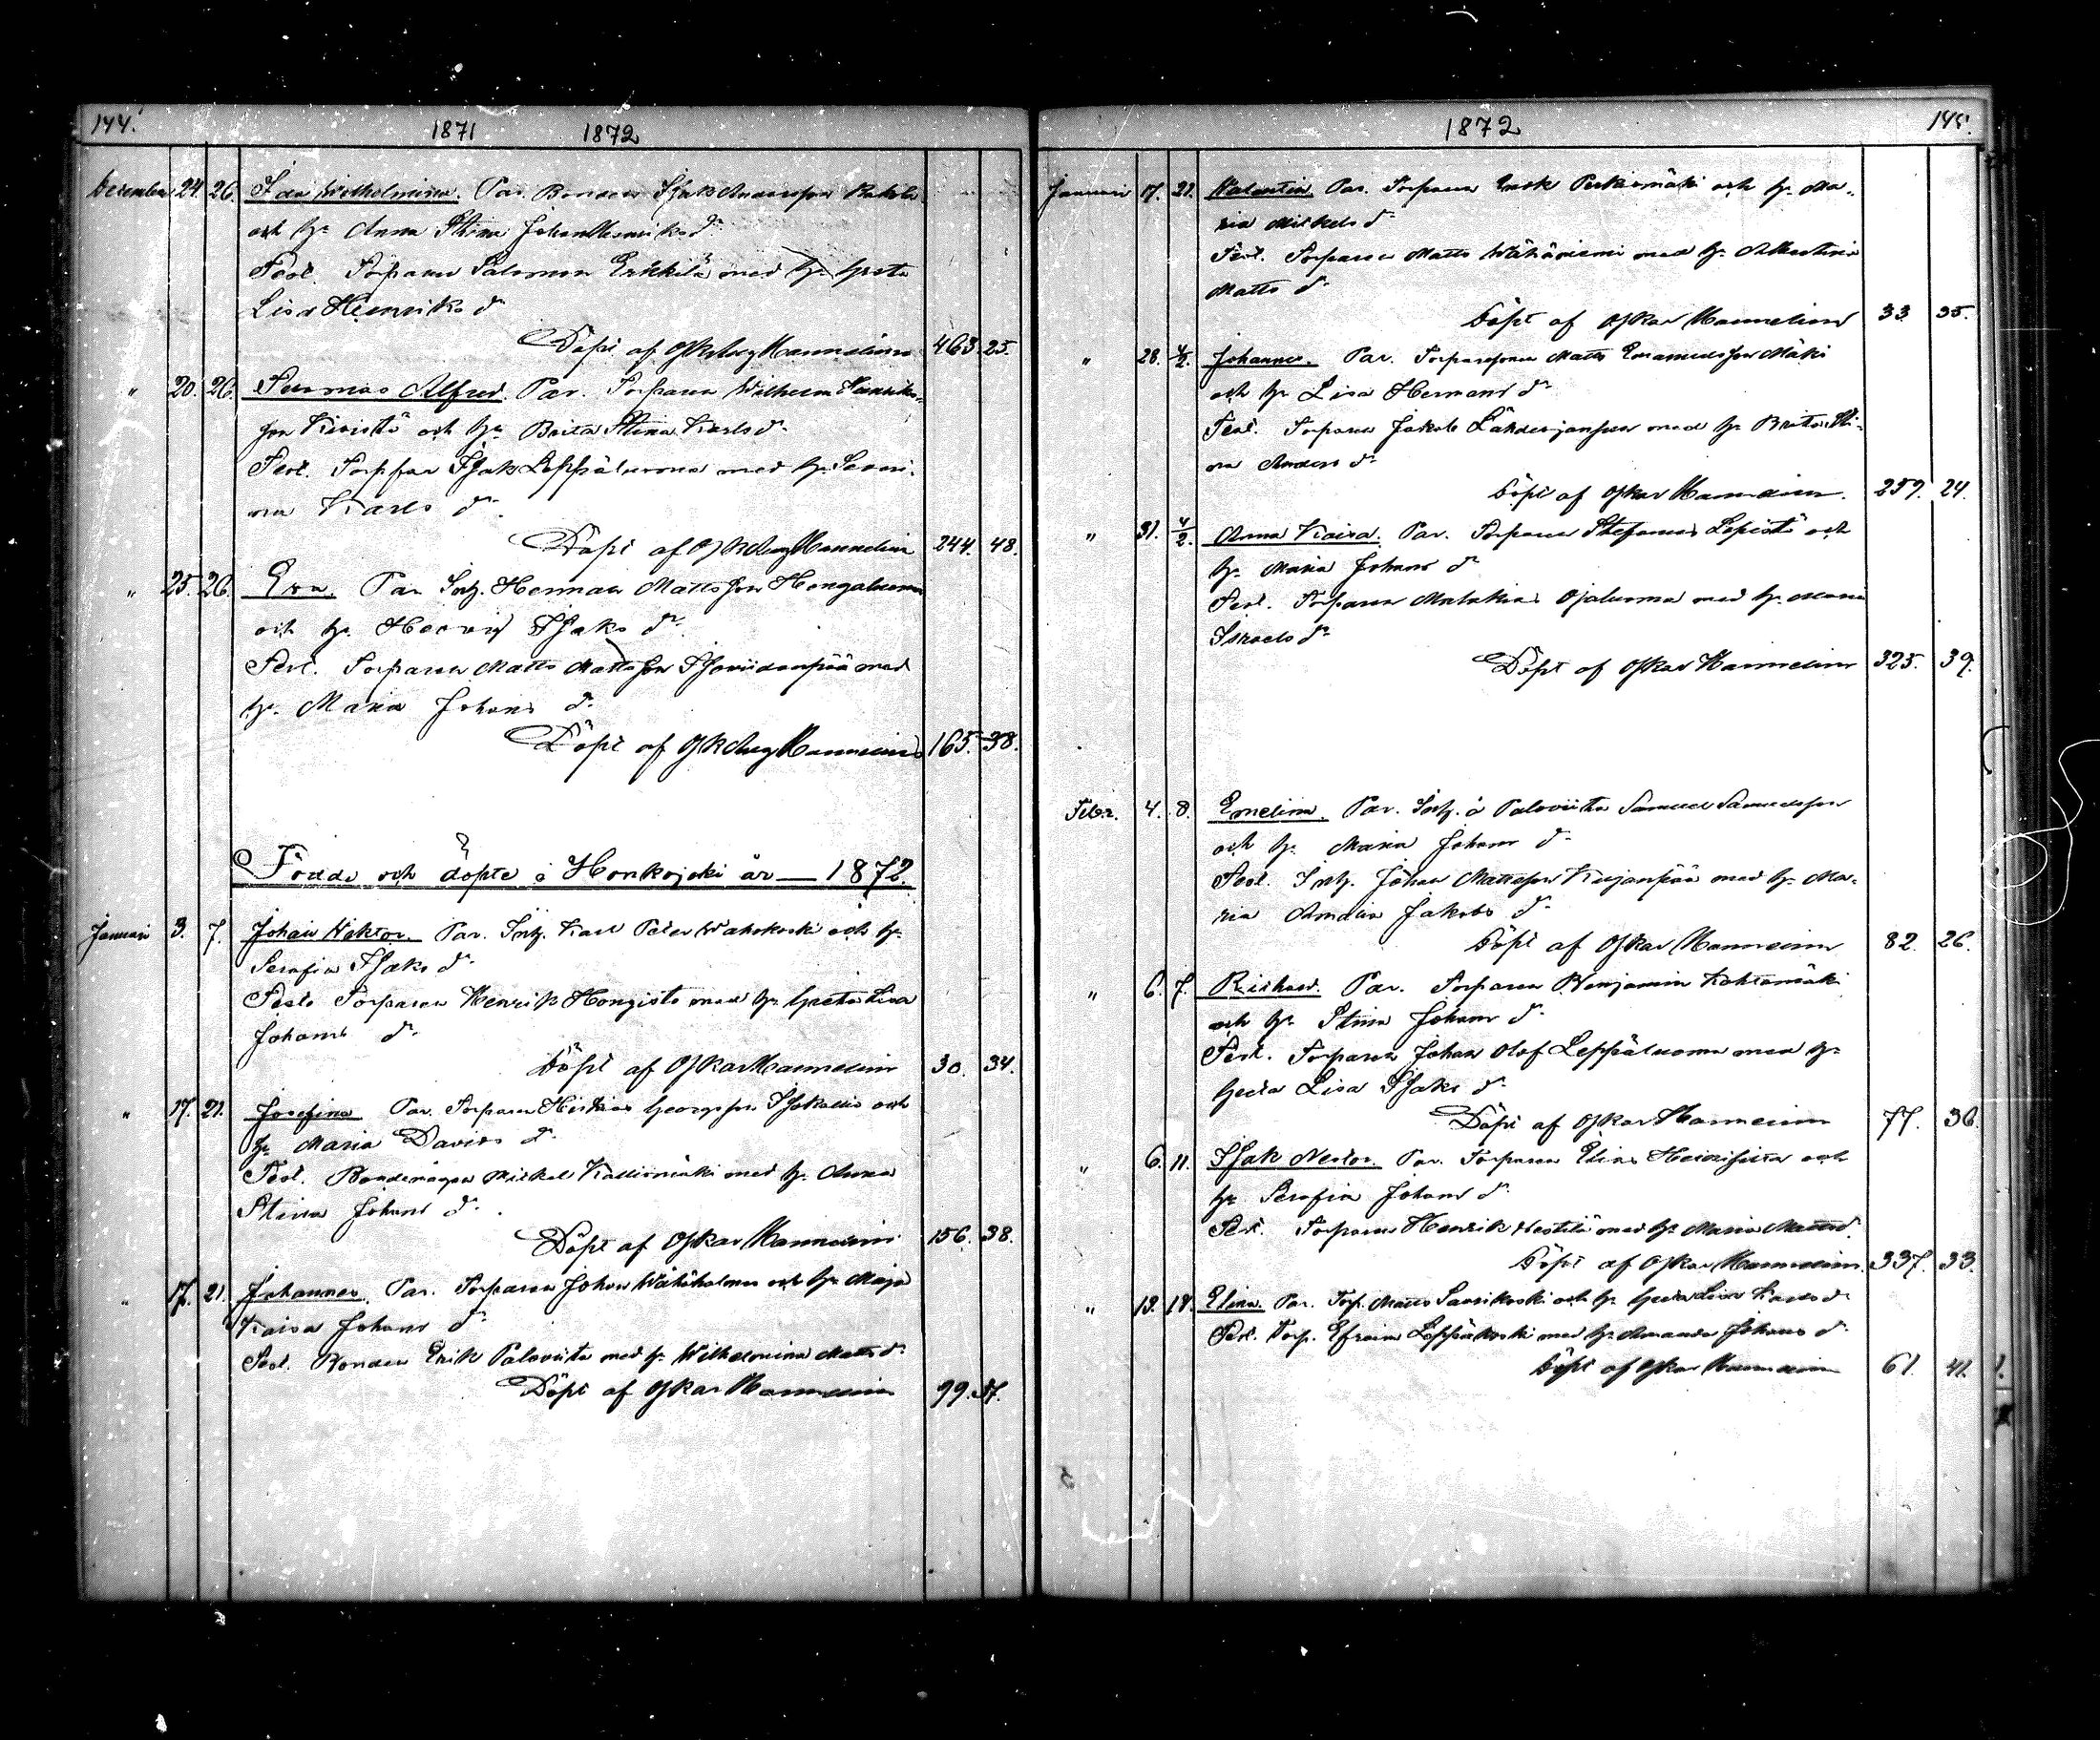 144.
1871 1872
December 24. 26. Ida Wilhelmina. Par. Bonden Isak Andersson
och h. Anna Stina Johan Henriks dr
Test. Torparen Salomon Erkkilä med h. Greta
Lisa Henriks dr
Döpt af Osk Aug Hannelius 463 25.
" 20. 26. Tuomas Alfred. Par. Torparen Wilhelm Henriks-
son Kivistö och h. Brita Stina Karls dr
Test. Torpare Isak Leppäluoma med h. Sava-
na Karls dr.
Döpt af Osk Aug Hannelius 244. 48.
" 25. 26. Eva. Par. Inh. Herman Mattsson Hongaluoma
och h. Hedvig Isaks dr
Test. Torparen Matts Mattsson med
h. Maria Johans dr
Döpt af Osk Aug Hannelius 165. 38.
Födde och döpte i Honkajoki år — 1872.
Januari 3. 7. Johan Nektor. Par. Inh. Karl Peter Wahokoski och h.
Serafia Isaks dr
Test. Torparen Henrik Hongisto med h. Greta Lisa
Johans dr.
Döpt af Oskar Hannelius 30. 34.
" 17. 21. Josefina Par. Torparen Hiskias Georgsson Isokallio och
h. Maria Davids dr.
Test. Bondemågen Mickel Kalliomäki med h. Anna
Stina Johans dr.
Döpt af Oskar Hannelius 156. 38.
" 17. 21. Johannes. Par. Torparen Johan Wähäholma och h. Maja
Kaisa Johans dr
Test. Bonden Erik Paloviita med h. Wilhelmina Matts dr
Döpt af Oskar Hannelius 99.
1872 145.
Januari 17. 21. Valentin. Par. Torparen Enok Perkiömäki och h. Ma-
ria Mickels dr
Test. Torparen Matts Wähäniemi med h. Albertina
Matts dr
Döpt af Oskar Hannelius 33 35.
" 28. 4/2. Johannes. Par. Torparesonen Matts Emanuelsson Mäki
och h. Lisa Hermans dr
Test. Torparen Jakob med h. Brita Sti-
na Anders dr
Döpt af Oskar Hannelius. 259. 24.
" 31. 4/2. Anna Kaisa. Par. Torparen Stefanus Lepistö och
h. Maria Johans dr
Test. Torparen Malakias Ojaluoma med h. Maria
Israels dr
Döpt af Oskar Hannelius 325. 39.
Febr. 4. 8. Emelina. Par. Inh. å Paloviita Samuel Samuelsson
och h. Maria Johans dr
Test. Inh. Johan Mattsson Kujanpää med h. Ma-
ria Amalia Jakobs dr
Döpt af Oskar Hannelius 82. 26.
" 6. 7. Richard. Par. Torparen Benjamin Kohtamäki
och h. Stina Johans dr
Test. Torparen Johan Olof Leppäluoma med h.
Greta Lisa Isaks dr
Döpt af Oskar Hannelius 77. 36.
" 6. 11. Isak Nestor. Par. Torparen Elias och
h. Serafia Johans dr
Test. Torparen Henrik med h. Maria
Döpt af Oskar Hannelius. 337. 33.
" 13. 18. Elina. Par. Torp. Matts Saarikoski och h. Greta Lisa Karls dr
Test. Torp. Efraim Leppäkoski med h. Amanda Johans dr
Döpt af Oskar Hannelius 61. 41.